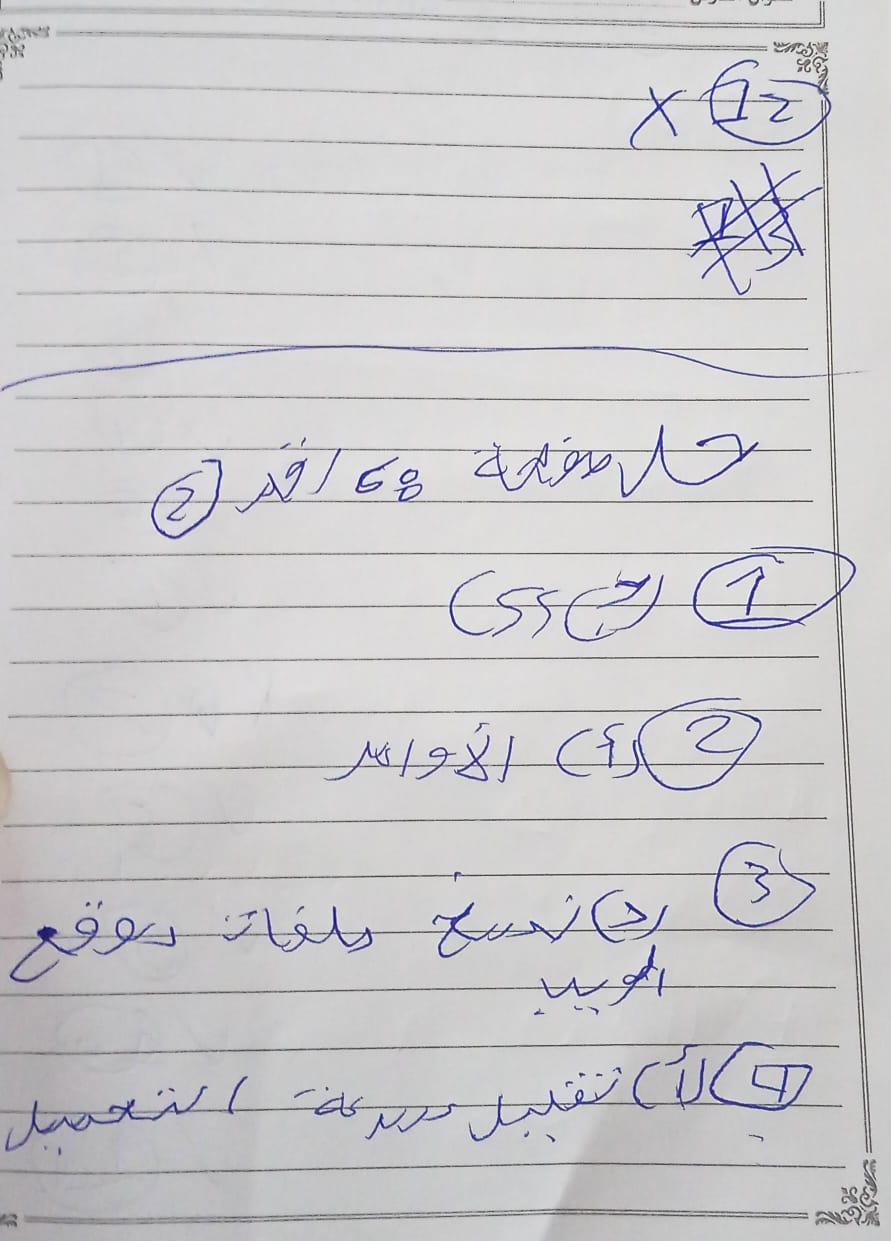 12 X
حل صفحة 68 اختر 2
1 (ج) css
2 (أ) الأوامر
3 (د) نسخ ملفات موقع
الويب
4 (أ) تقليل سرعة التحميل